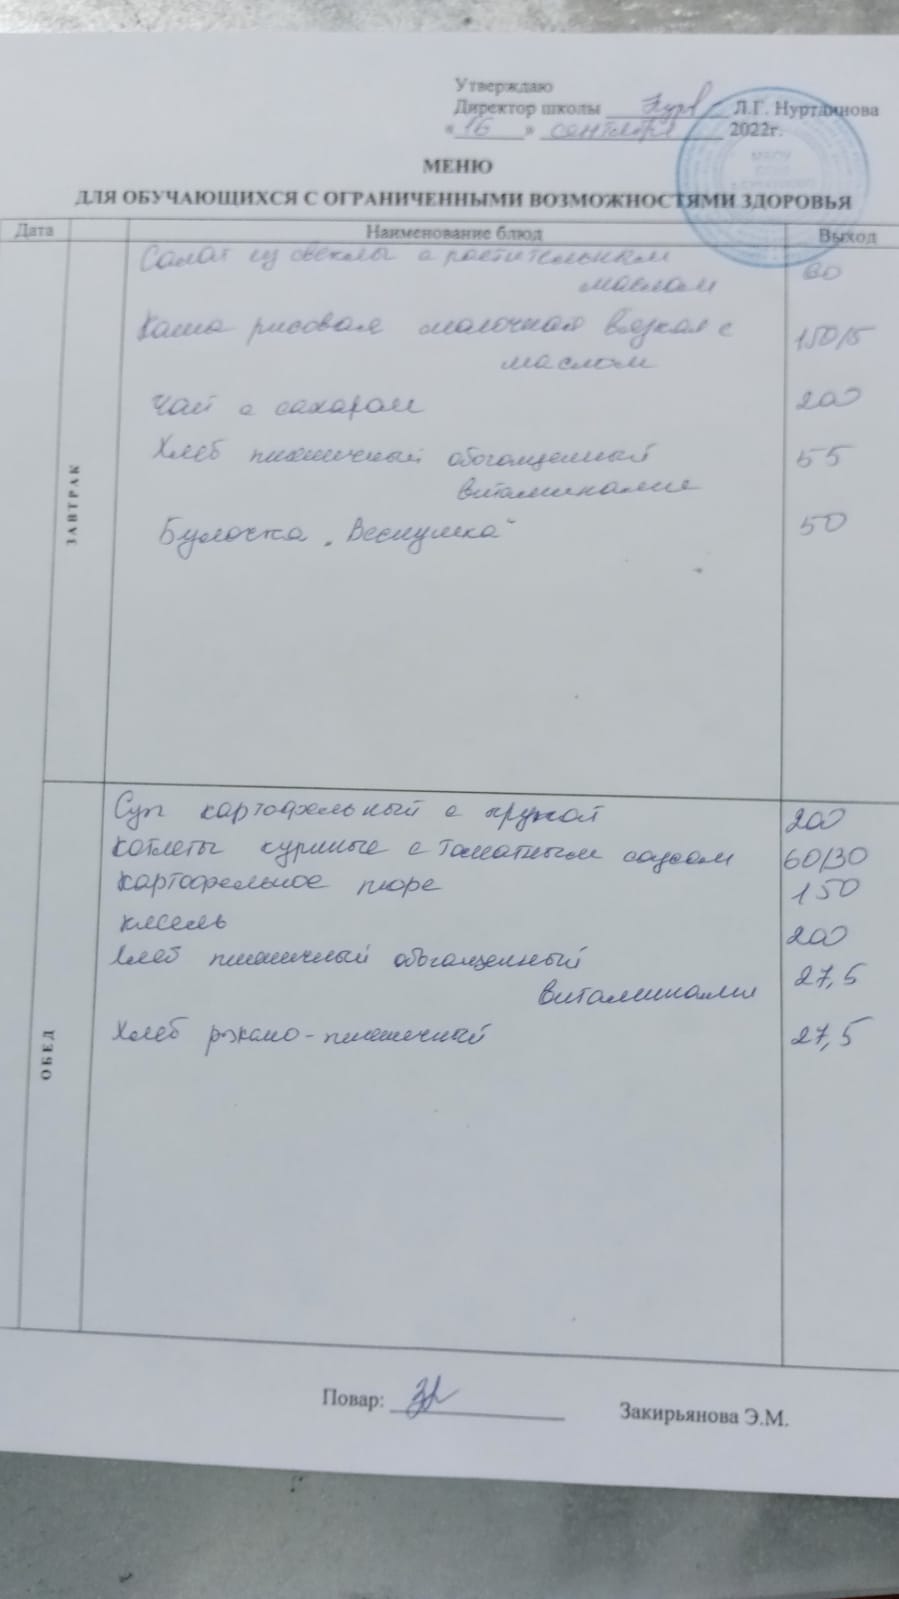 Утверждаю
Директор школы Л.Г. Нуртдинова
« 16 » сентября 2022г.
МЕНЮ
ДЛЯ ОБУЧАЮЩИХСЯ С ОГРАНИЧЕННЫМИ ВОЗМОЖНОСТЯМИ ЗДОРОВЬЯ
Дата Наименование блюд Выход
ЗАВТРАК
Салат из свеклы с растительным
маслом 60
Каша рисовая молочная вязкая с 150/5
маслом
Чай с сахаром 200
Хлеб пшеничный обогащенный 55
витаминами
Булочка „Веснушка" 50
ОБЕД
Суп картофельный с крупой 200
Котлеты куриные с томатным соусом 60/30
Картофельное пюре 150
кисель 200
Хлеб пшеничный обогащенный 27,5
витаминами
Хлеб ржано-пшеничный 27,5
Повар: Закирьянова Э.М.